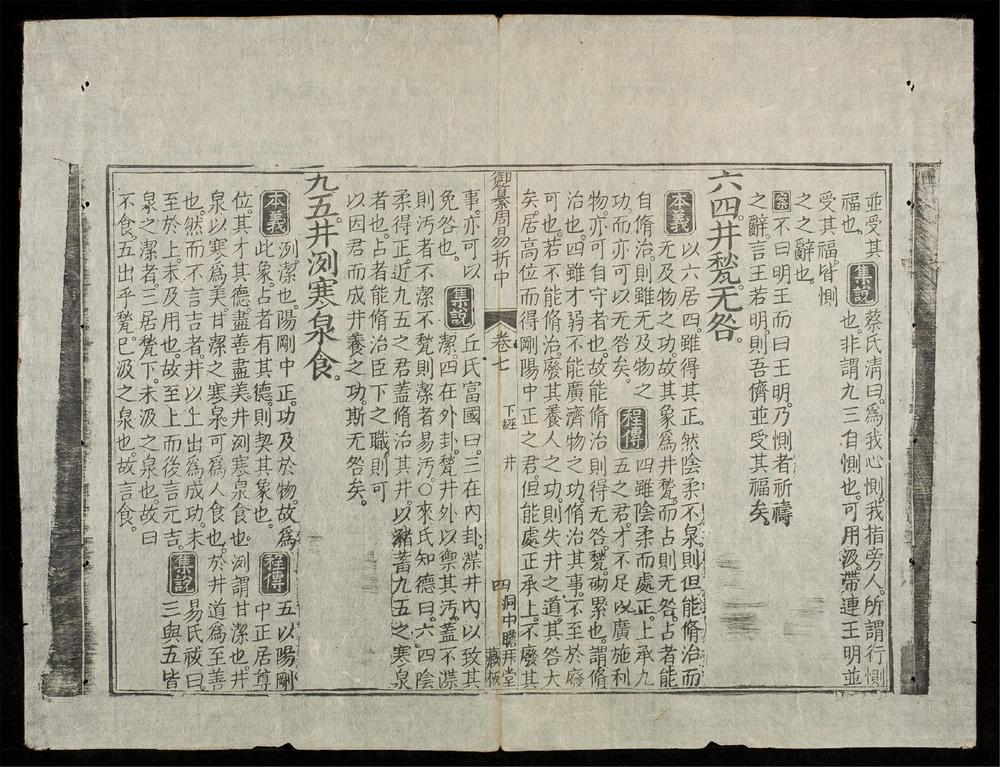 並受其 集說 蔡氏清曰。爲我心惻。我指旁人。所謂行惻
福也。 也。非謂九三自惻也。可用汲。帶連王明並
受其福。皆惻
之之辭也。
案 不曰明王而曰王明。乃惻者祈禱
之辭。言王若明。則吾儕並受其福矣。
六四。井甃。无咎。
本義 以六居四。雖得其正。然陰柔不泉。則但能脩治而
无及物之功。故其象爲井甃。而占則无咎。占者能
自脩治。則雖无及物之 程傳 四雖陰柔而處正。上承九
功。而亦可以无咎矣。 五之君。才不足以廣施利
物。亦可自守者也。故能脩治則得无咎。甃。砌累也。謂脩
治也。四雖才弱。不能廣濟物之功。脩治其事。不至於廢
可也。若不能脩治。廢其養人之功。則失井之道。其咎大
矣。居高位而得剛陽中正之君。但能處正承上。不廢其
御纂周易折中 卷七 下經 井 四 洞中 堂藏板
事。亦可以 集說 丘氏富國曰。三在內卦。渫井內以致其
免咎也。 潔。四在外卦。甃井外以禦其汚。蓋不渫
則汚者不潔。不甃則潔者易汚。○來氏知德曰。六四陰
柔得正。近九五之君。蓋脩治其井。以瀦蓄九五之寒泉
者也。占者能脩治臣下之職。則可
以因君而成井養之功。斯无咎矣。
九五。井洌寒泉食。
本義 洌。潔也。陽剛中正。功及於物。故爲
此象。占者有其德。則契其象也。 程傳 五以陽剛
中正居尊
位。其才其德。盡善盡美。井洌寒泉食也。洌謂甘潔也。井
泉以寒爲美。甘潔之寒泉。可爲人食也。於井道爲至善
也。然而不言吉者。井以上出爲成功。未
至於上。未及用也。故至上而後言元吉。 集說 易氏祓曰。
三與五皆
泉之潔者。三居甃下。未汲之泉也。故曰
不食。五出乎甃。已汲之泉也。故言食。